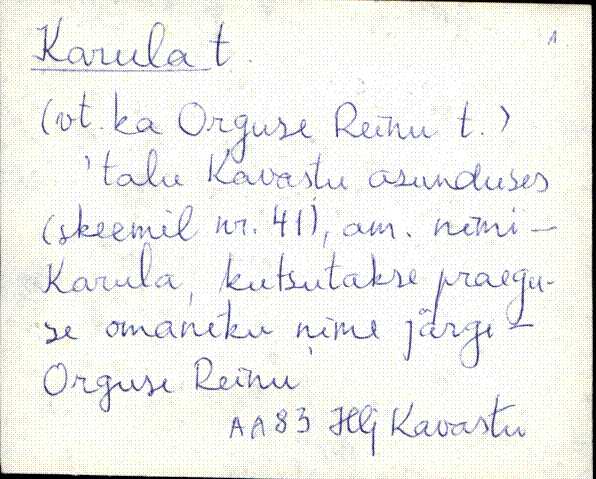 Karula t.
1
(vt. ka Orguse Reinu t.)
'talu Kavastu asunduses
(skeemil nr. 41), am. nimi –
Karula, kutsutakse praegu-
se omaniku nime järgi –
Orguse Reinu'
AA83 HG Kavastu